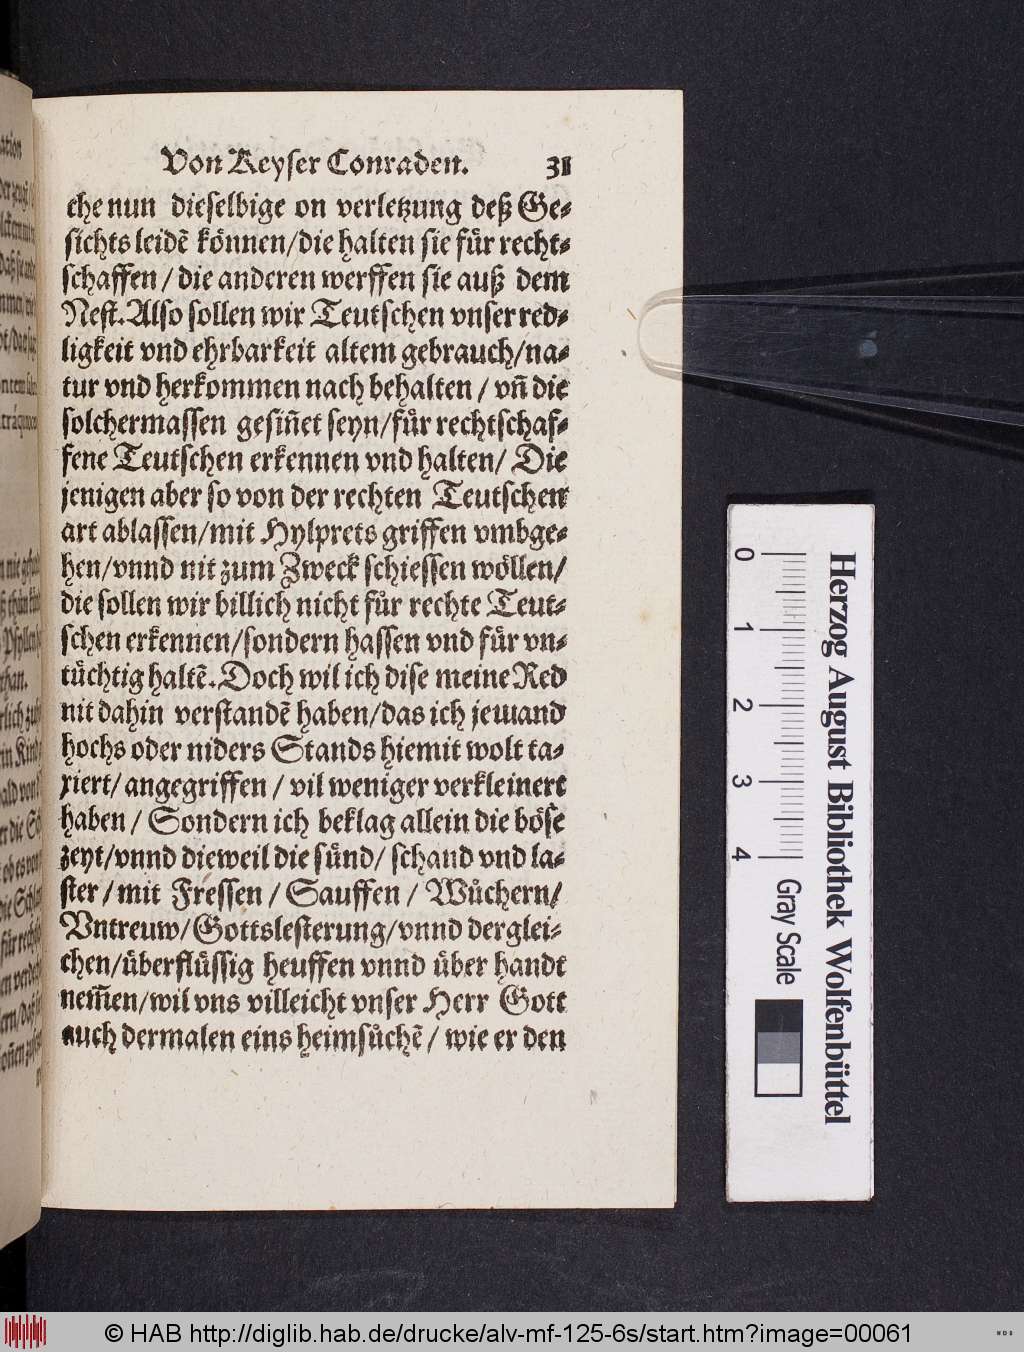 Von Keyser Conraden. 31
che nun dieselbige on verletzung deß Ge⸗
sichts leidẽ können/die halten sie fuͤr recht⸗
schaffen / die anderen werffen sie auß dem
Nest. Also sollen wir Teutschen vnser red⸗
ligkeit vnd ehrbarkeit altem gebrauch/na⸗
tur vnd herkommen nach behalten / vñ die
solchermassen gesiñet seyn/fuͤr rechtschaf⸗
fene Teutschen erkennen vnd halten/ Die
jenigen aber so von der rechten Teutschen
art ablassen/mit Hylprets griffen vmbge⸗
hen/vnnd nit zum Zweck schiessen woͤllen/
die sollen wir billich nicht fuͤr rechte Teut⸗
schen erkennen/sondern hassen vnd fuͤr vn⸗
tuͤchtig haltẽ. Doch wil ich dise meine Red
nit dahin verstandẽ haben/das ich jemand
hochs oder niders Stands hiemit wolt ta⸗
xiert/ angegriffen / vil weniger verkleinert
haben / Sondern ich beklag allein die boͤse
zeyt/vnnd dieweil die suͤnd/ schand vnd la⸗
ster / mit Fressen / Sauffen / Wuͦchern/
Vntreuw/Gottslesterung/vnnd derglei⸗
chen/uͤberfluͤssig heuffen vnnd uͤber handt
nem̃en/wil vns villeicht vnser Herr Gott
auch dermalen eins heimsuͦchẽ / wie er den
0 1 2 3 4
Gray Scale
Herzog August Bibliothek Wolfenbüttel
© HAB http://diglib.hab.de/drucke/alv-mf-125-6s/start.htm?image=00061